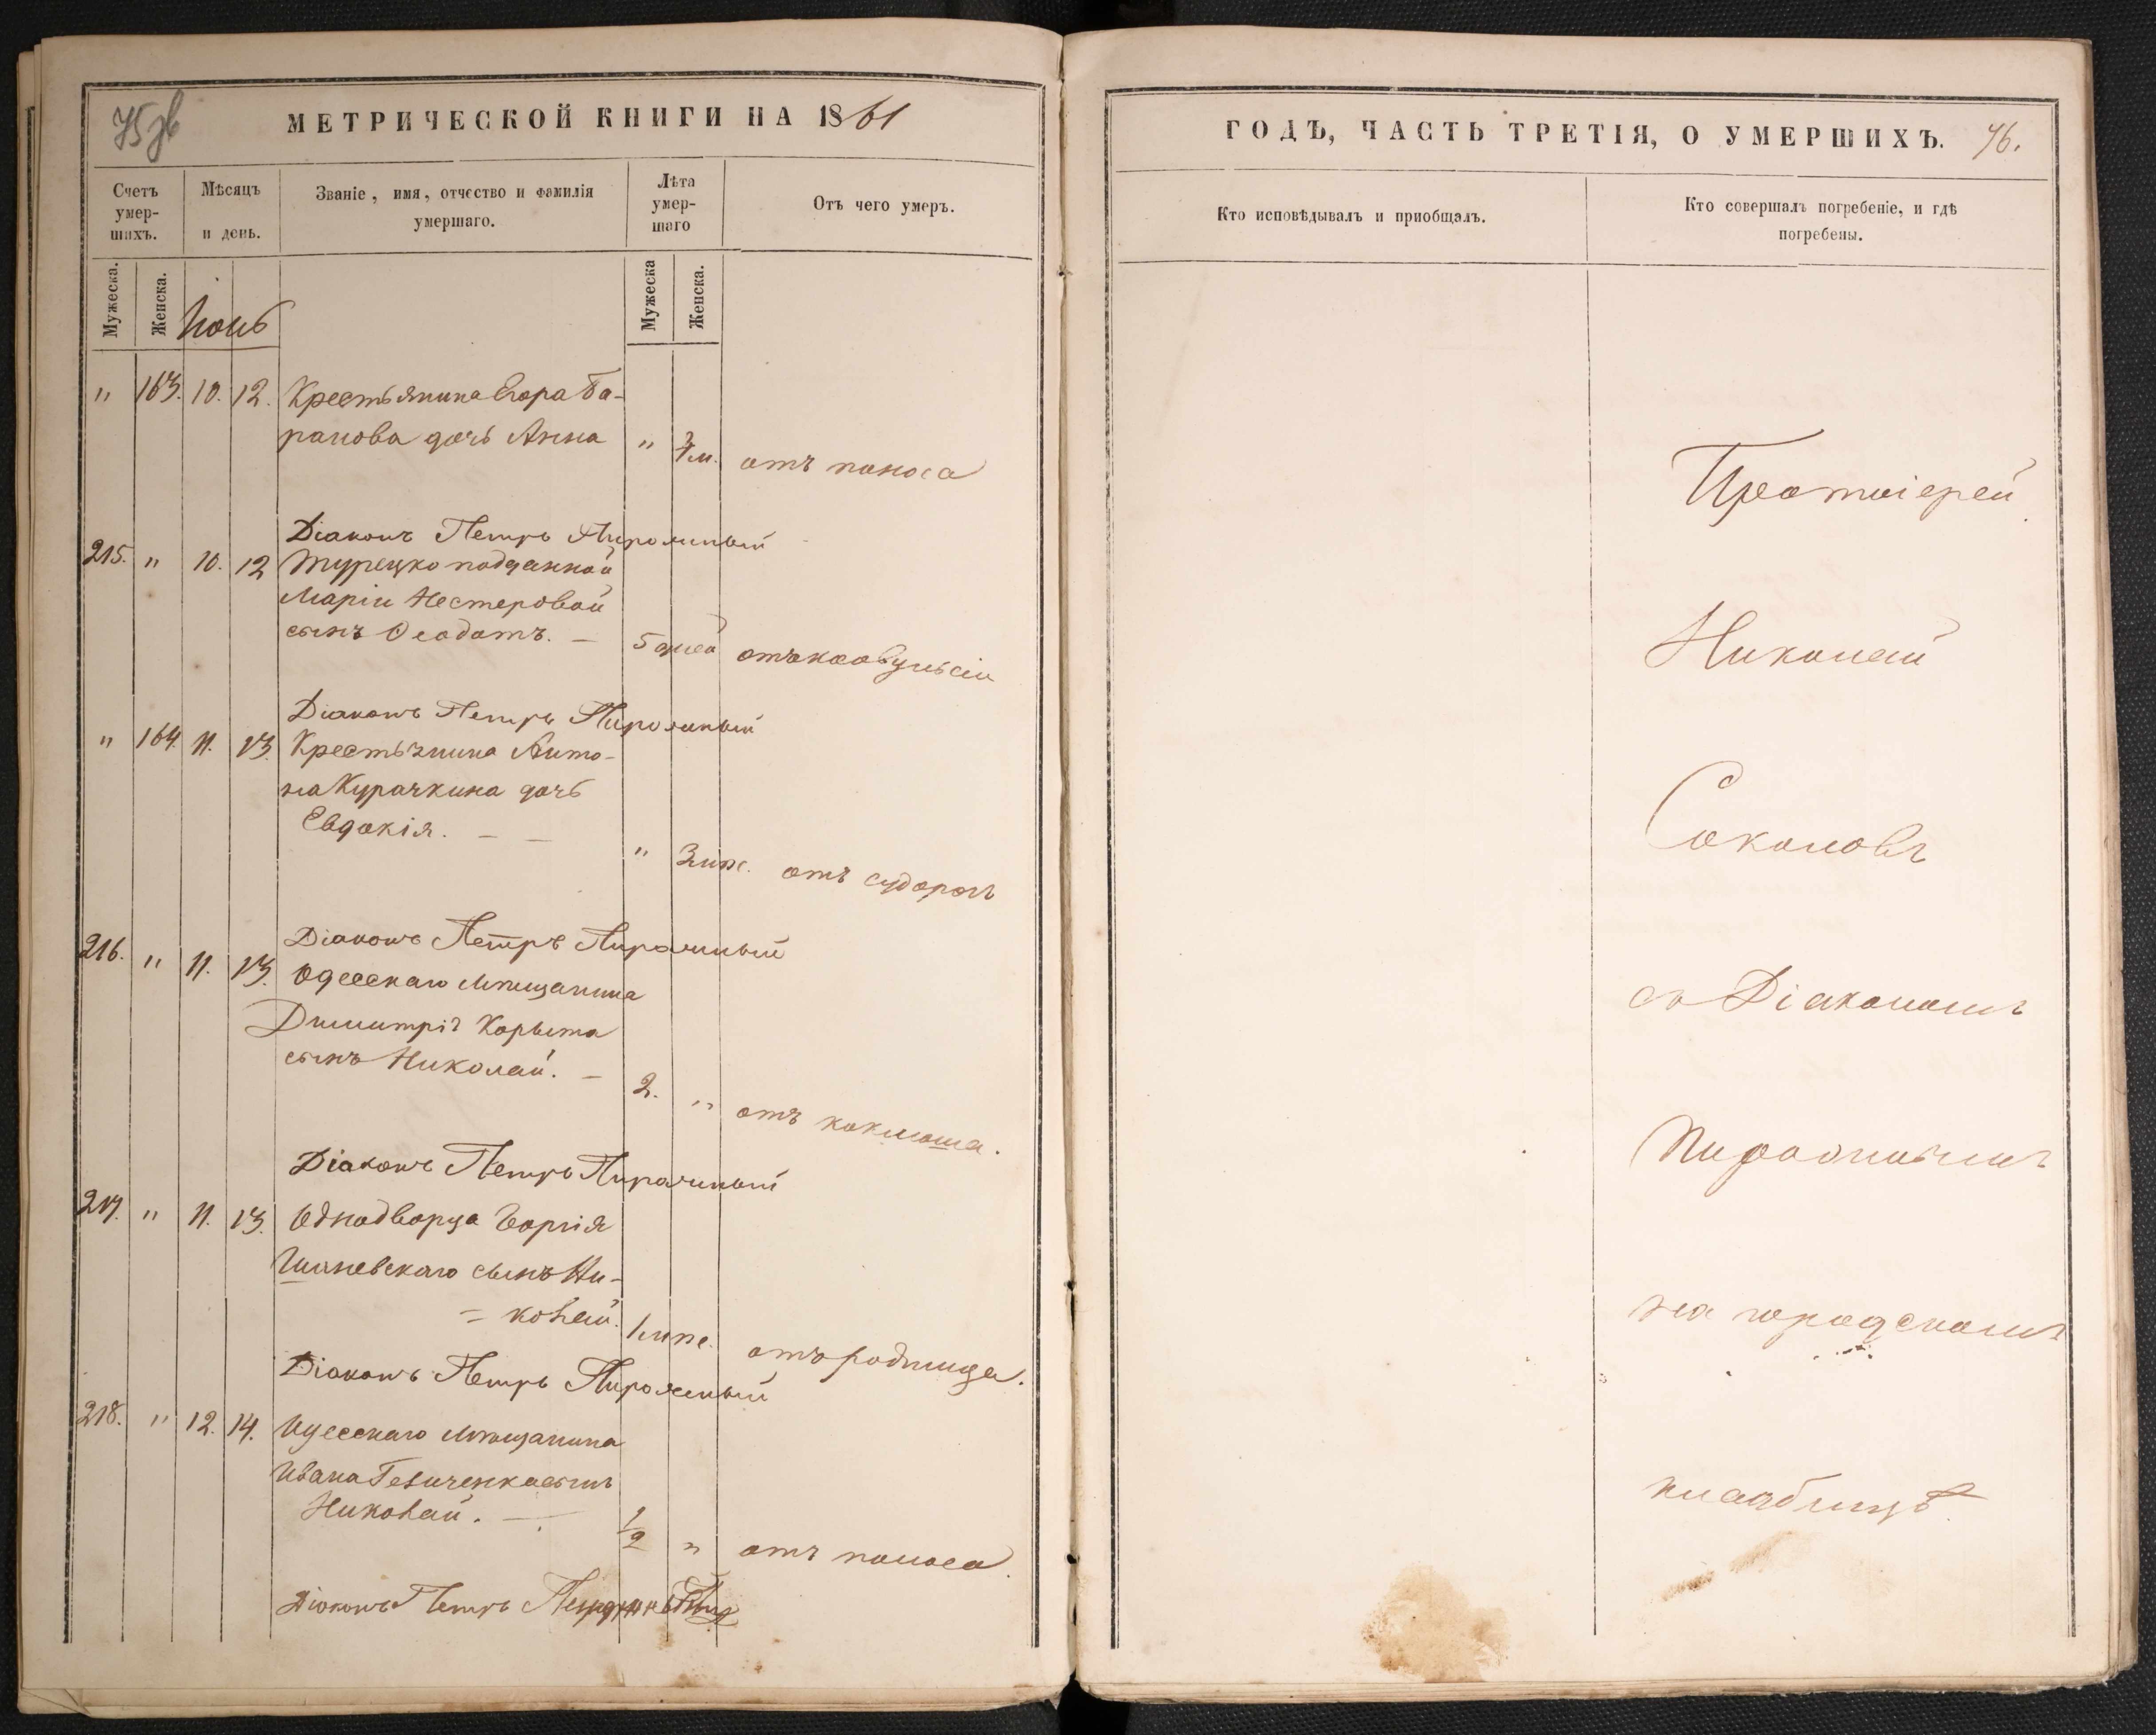 75 зв
МЕТРИЧЕСКОЙ КНИГИ НА 1861
Счетъ умер-шихъ.
Мѣсяцъ и день.
Званіе, имя, отчество и фамилія умершаго.
Лѣта умер-шаго
Отъ чего умеръ.
Мужеска.
Женска.
Июнь
Мужеска
Женска.
" 163. 10. 12. Крестьянина Егора Ба-
ранова дочь Анна " м. отъ поноса
Діаконъ Петръ Пироженый
215. " 10. 12 Турецко подданной
Маріи Нестеровой
сынъ Ѳеодотъ. — 5 дней отъ конвульсіи
Діаконъ Петръ Пироженый
" 164. 11. 13. Крестьянина Анто-
на Курачкина дочь
Евдокія. — — " 3 мѣс. отъ судорогъ
Діаконъ Петръ Пироженый
216. " 11. 13. Одесскаго мѣщанина
Димитрія Корыта
сынъ Николай. — 2. " отъ коклюша.
Діаконъ Петръ Пироженый
217. " 11. 13. Однодворца Георгія
сынъ Ни-
= колай. 1 мѣс. отъ родимца.
Діаконъ Петръ Пироженый
218. " 12. 14. Одесскаго мѣщанина
Ивана сынъ
Николай. — 1/2 " отъ поноса.
Діаконъ Петръ
ГОДЪ, ЧАСТЬ ТРЕТІЯ, О УМЕРШИХЪ. 76.
Кто исповѣдывалъ и пріобщалъ.
Кто совершалъ погребеніе, и гдѣ погребены.
Протоіерей
Николай
Соколовъ
съ Діакономъ
Пироженымъ
на городскомъ
кладбищѣ.